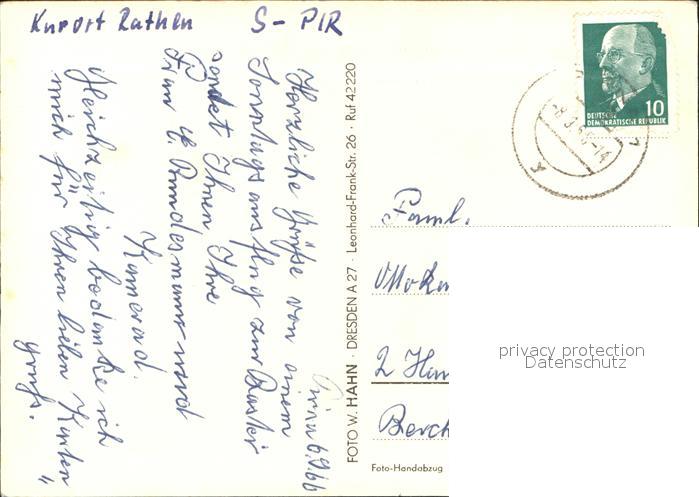 Kurort Rathen S-PIR
Pirna 6.9.66
Herzliche Grüße von einem
Sonntagsausflug zur Bastei
sendet Ihnen Ihre
Frau E. und
Kamerad.
Gleichzeitig bedanke ich
mich für Ihren lieben Karten
gruß."
FOTO W. HAHN · DRESDEN A 27 · Leonhard-Frank-Str. 26 · Ruf 42220
10
DEUTSCHE
DEMOKRATISCHE REPUBLIK
Faml.
2 Ham
Berch
privacy protection
Datenschutz
Foto-Handabzug